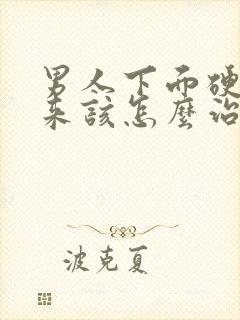 男人下而硬
来该怎麼治
波克夏